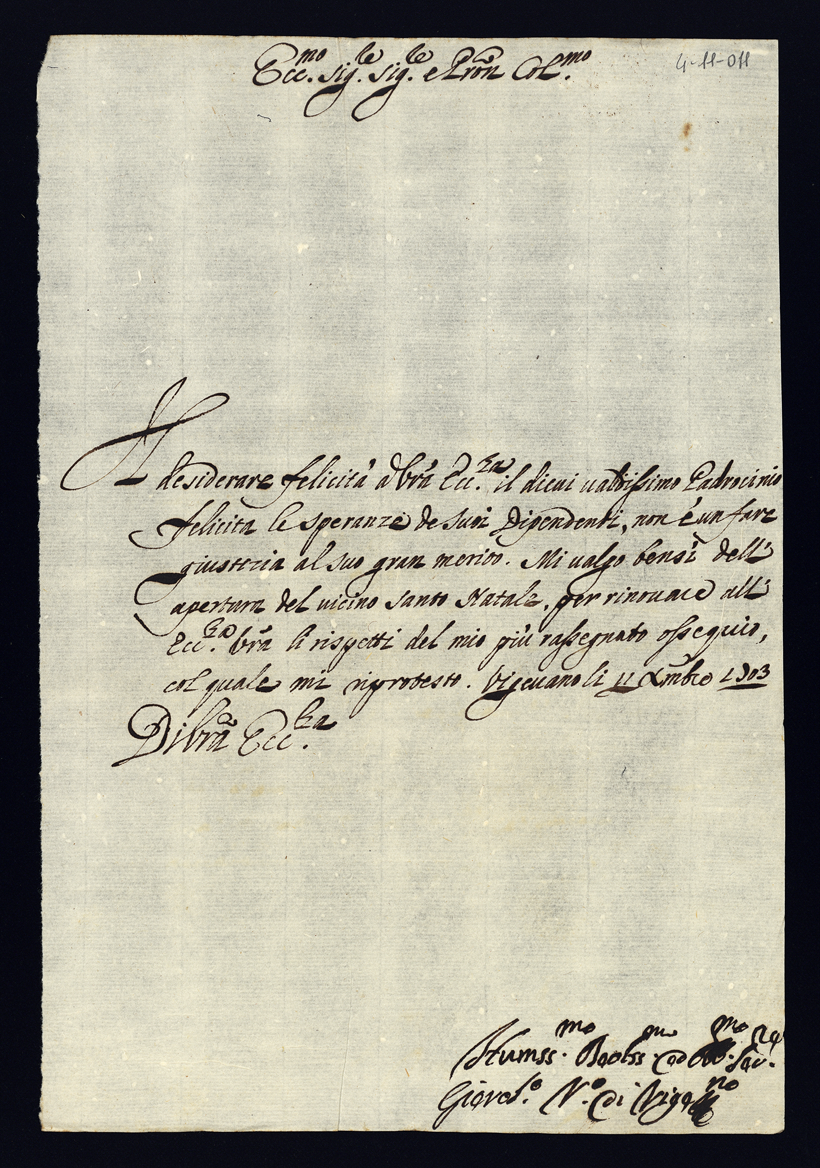 Ecc.mo Sig.le Sig.le e Pron Col.mo
4-11-011
Il desiderare felicità a Vrã Ecc.za il di cui validissimo Padrocinio
felicita le speranze de suoi Dipendenti, non è un fare
giustizia al suo gran merito. Mi valgo bensì dell'
apertura del vicino Santo Natale, per rinouare all'
Ecc.za Vrã li rispetti del mio più rassegnato ossequio,
col quale mi riprotesto. Vigeuano li 11 Xmbre 1703
Di Vrã Ecc.za
Humiss.mo
di